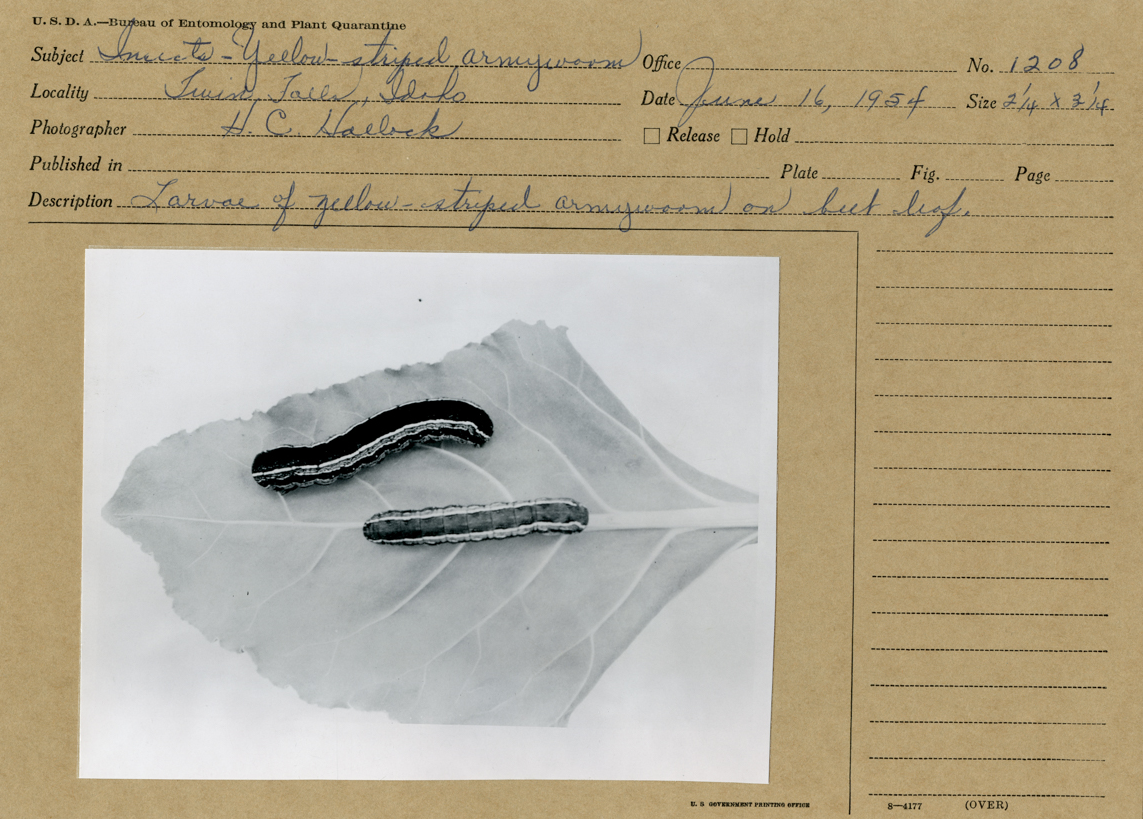 U. S. D. A.—Bureau of Entomology and Plant Quarantine
Subject Insects - Yellow-striped armyworm Office No. 1208
Locality Twin Falls, Idaho Date June 16, 1954 Size 2 1/4 x 3 1/4
Photographer H. C. Hallock Release Hold
Published in Plate Fig. Page
Description Larvae of yellow-striped armyworm on beet leaf.
U. S GOVERNMENT PRINTING OFFICE 8—4177 (OVER)